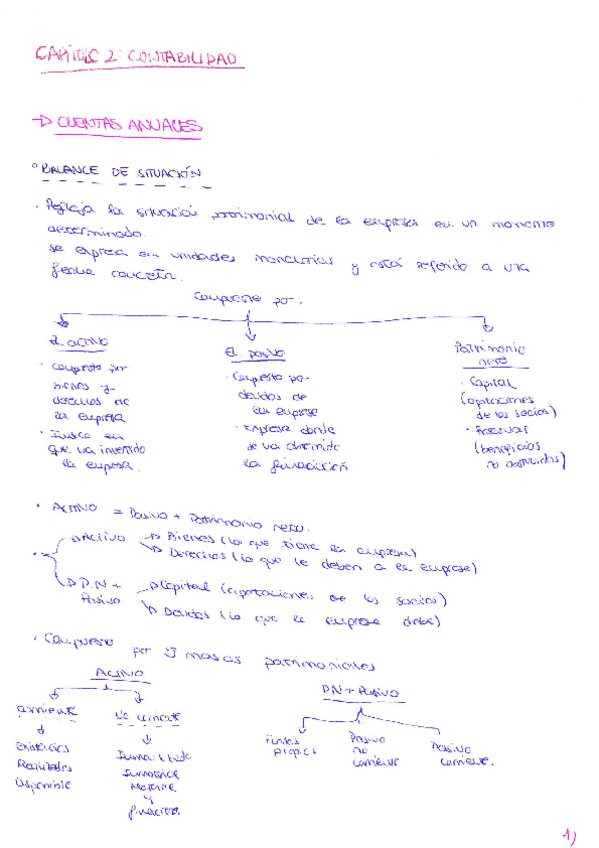 CAPITULO 2: CONTABILIDAD
→ CUENTAS ANUALES
° BALANCE DE SITUACIÓN
· Refleja la situación patrimonial de la empresa en un momento
determinado.
se expresa en unidades monetarias y está referido a una
fecha concreta.
Compuesto por.
El activo
· Compuesto por
bienes y
derechos de
la empresa
en
que va invertido
la empresa.
El pasivo
· Compuesto por
deudas de
la empresa
· Expresa donde
se va obtenido
la financiación
Patrimonio
neto
· Capital
(aportaciones
de los socios)
· Reservas
(beneficios
no distribuidos)
· ACTIVO = Pasivo + Patrimonio neto.
· → Activo → Bienes (lo que tiene la empresa)
→ Derechos (lo que le deben a la empresa)
→ P.N + Pasivo → Capital (aportaciones de los socios)
→ Deudas (lo que la empresa debe)
· Compuesto por masas patrimoniales
ACTIVO
corriente
Existencias
Realizables
Disponible
No corriente
Material
y
financiera
PN + Pasivo
Fondos
propios
Pasivo
no
corriente
Pasivo
corriente.
1)